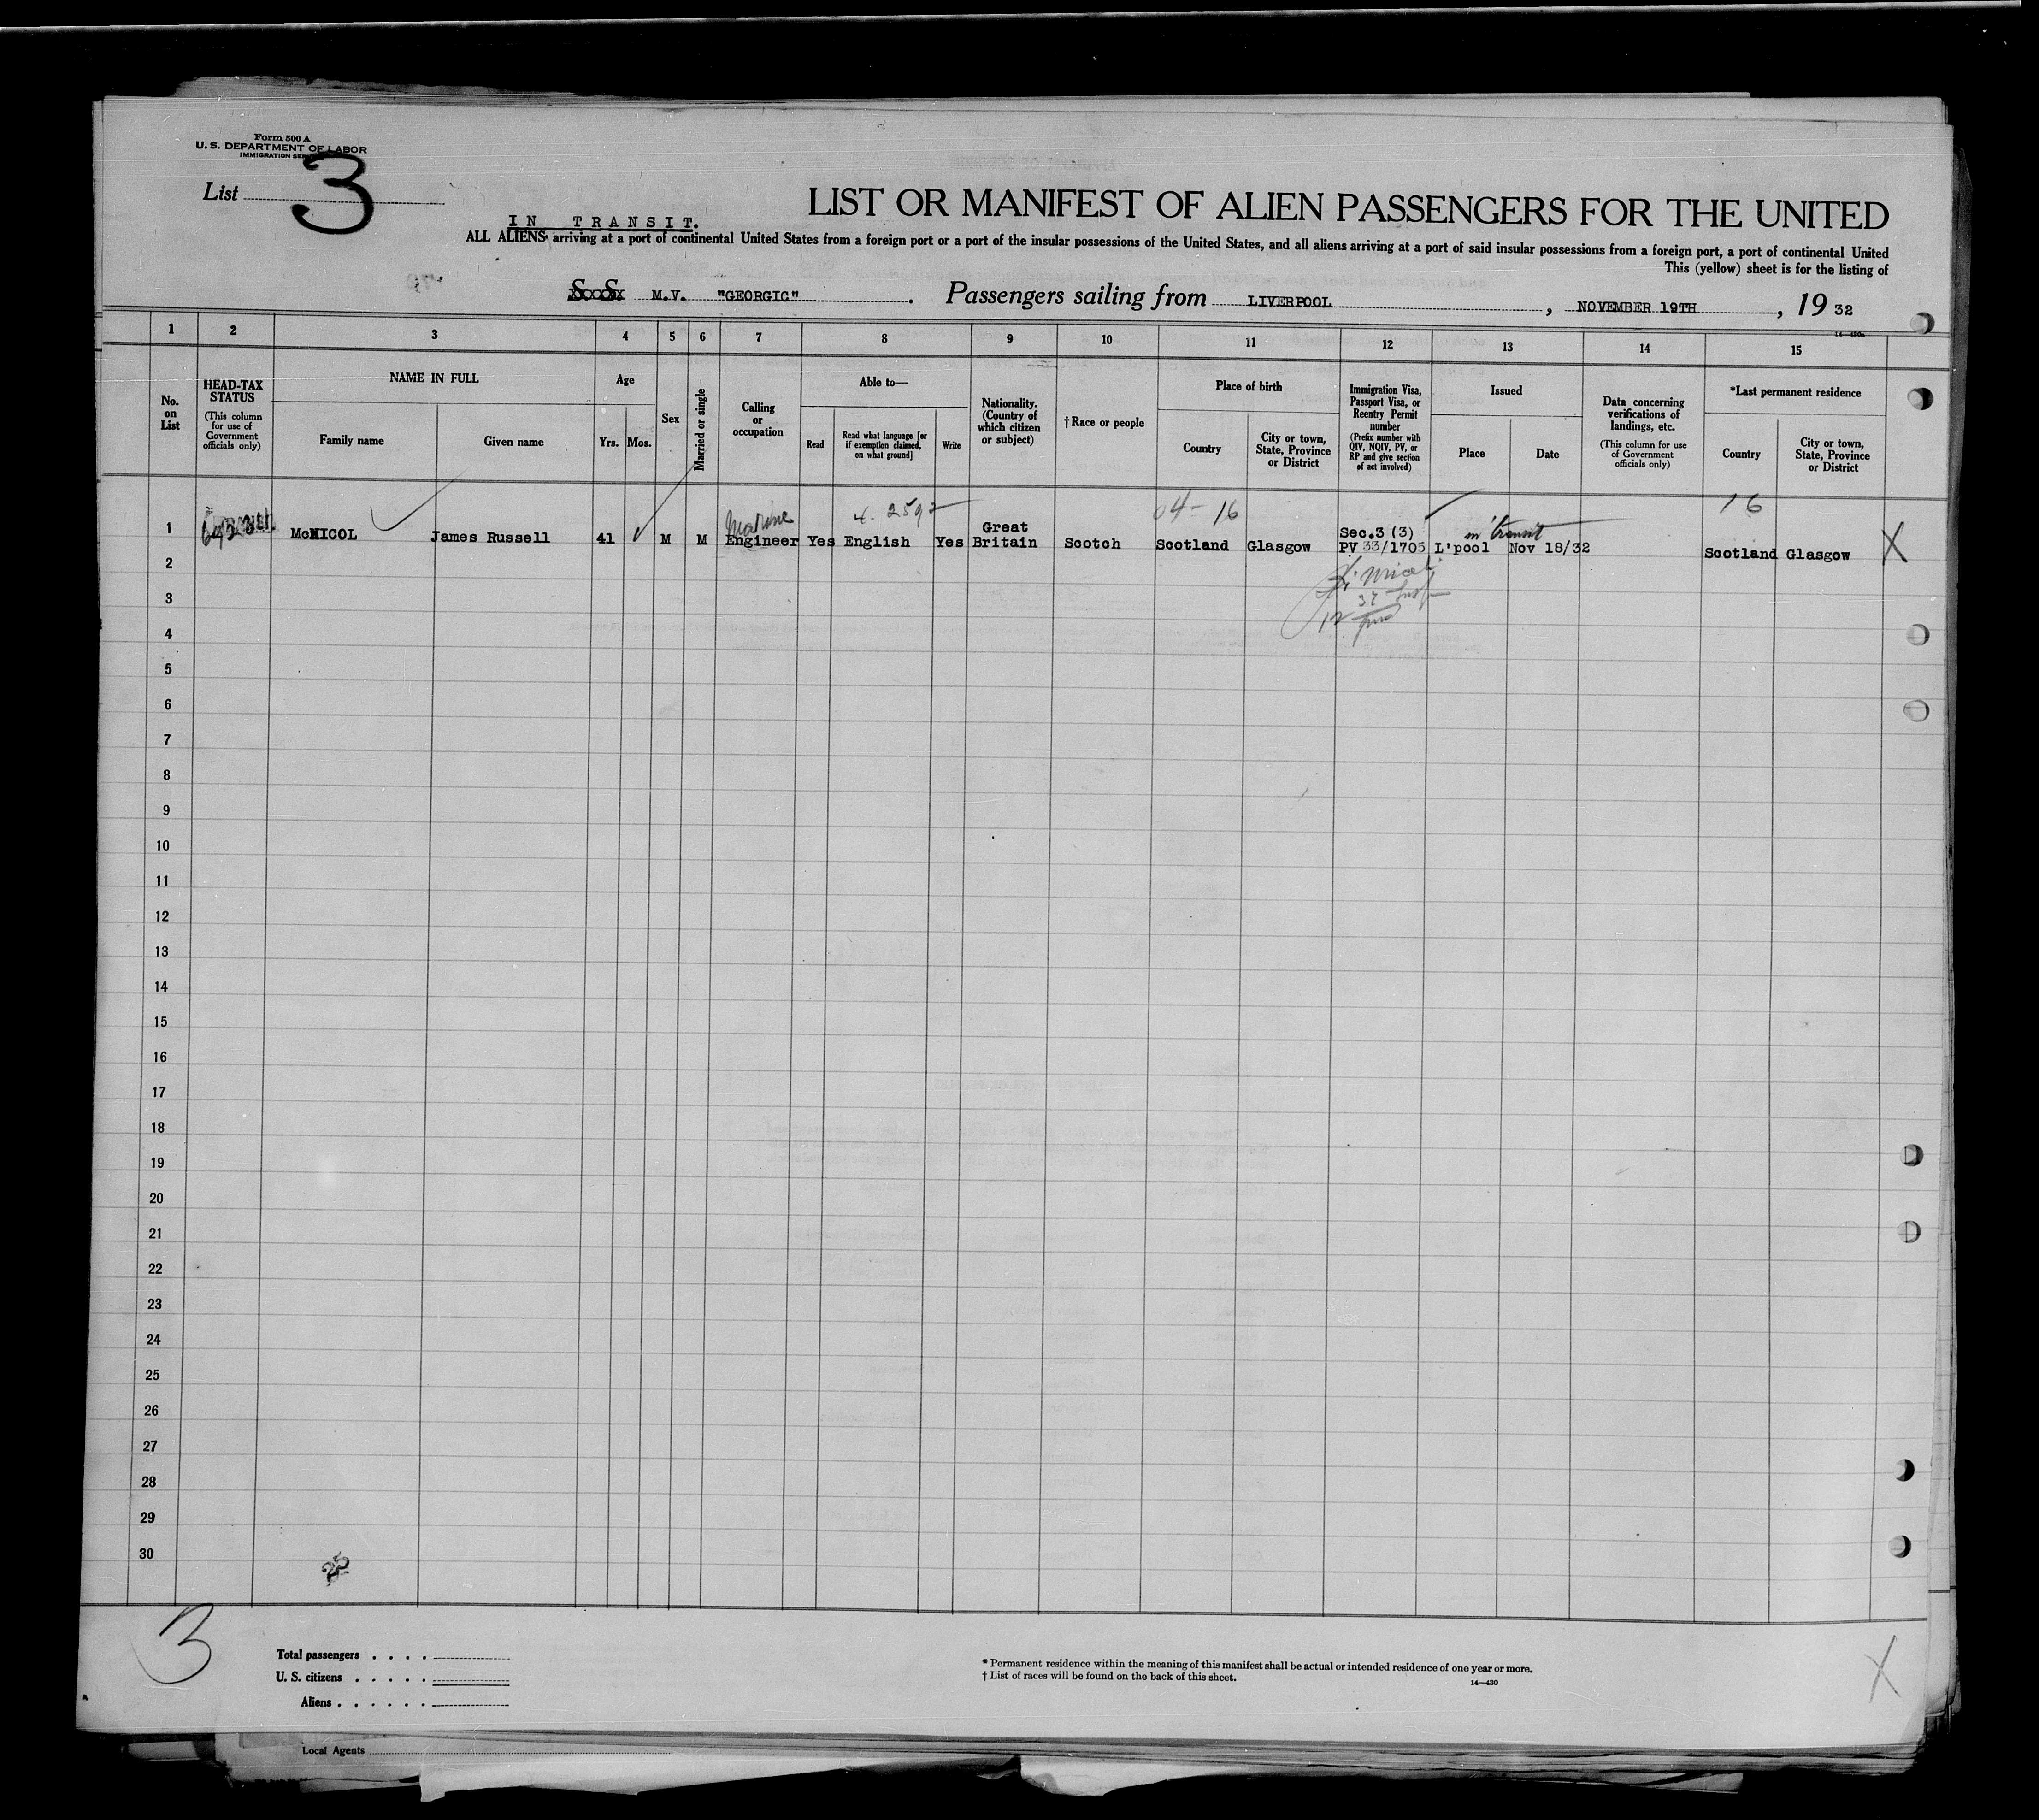 Form 500 A
U. S. DEPARTMENT OF LABOR
IMMIGRATION
List 3
LIST OR MANIFEST OF ALIEN PASSENGERS FOR THE UNITED
IN TRANSIT.
ALL ALIENS arriving at a port of continental United States from a foreign port or a port of the insular possessions of the United States, and all aliens arriving at a port of said insular possessions from a foreign port, a port of continental United
This (yellow) sheet is for the listing of
S. S. M.V. "GEORGIC". Passengers sailing from LIVERPOOL, NOVEMBER 19TH, 19 32
1 2 3 4 5 6 7 8 9 10 11 12 13 14 15
No. on List
HEAD-TAX STATUS
(This column for use of Government officials only)
NAME IN FULL
Family name
Given name
Age
Yrs. Mos.
Sex
Married or single
Calling or occupation
Able to—
Read
Read what language [or if exemption claimed, on what ground]
Write
Nationality. (Country of which citizen or subject)
† Race or people
Place of birth
Country
City or town, State, Province or District
Immigration Visa, Passport Visa, or Reentry Permit number
(Prefix number with QIV, NQIV, PV, or RP and give section of act involved)
Issued
Place
Date
Data concerning verifications of landings, etc.
(This column for use of Government officials only)
*Last permanent residence
Country
City or town, State, Province or District
04-16
16
Marine
Great
Sec.3 (3)
in transit
1 McNICOL James Russell 41 M M Engineer Yes English Yes Britain Scotch Scotland Glasgow PV 33/1705 L'pool Nov 18/32 Scotland Glasgow X
2
3
4
5
6
7
8
9
10
11
12
13
14
15
16
17
18
19
20
21
22
23
24
25
26
27
28
29
30
3
Total passengers . . . .
U. S. citizens . . . . .
Aliens . . . . . .
* Permanent residence within the meaning of this manifest shall be actual or intended residence of one year or more.
† List of races will be found on the back of this sheet.
14—430
X
Local Agents